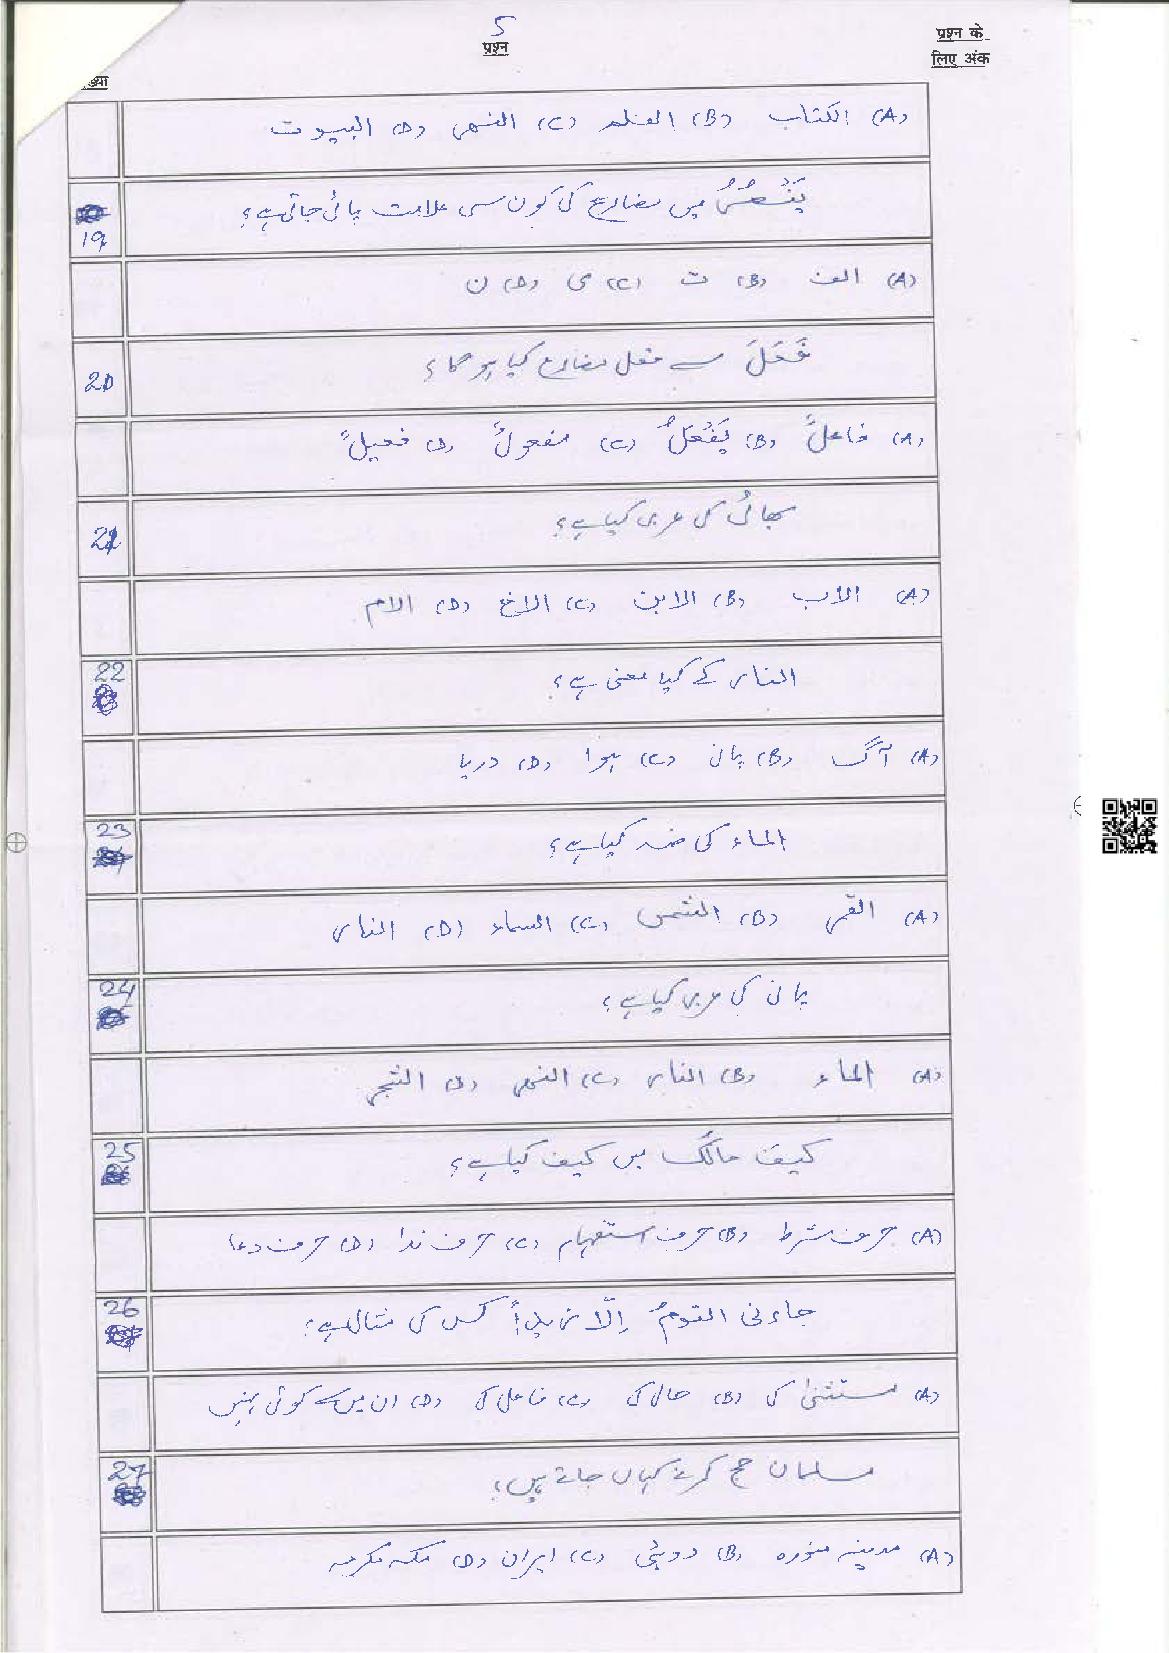 5
प्रश्न
प्रश्न के
लिए अंक
ख्या
(A) الکتاب (B) القلم (C) النهر (D) البیوت
19 یَنْصُرُ میں مضارع کی کون سی علامت پائی جاتی ہے؟
(A) الف (B) ت (C) ی (D) ن
20 فَعَلَ سے فعل مضارع کیا ہوگا؟
(A) فاعلٌ (B) یَفْعَلُ (C) مفعولٌ (D) فعیلٌ
21 بھائی کی عربی کیا ہے؟
(A) الاب (B) الابن (C) الاخ (D) الام
22 النار کے کیا معنی ہے؟
(A) آگ (B) پانی (C) ہوا (D) دریا
23 الماء کی ضد کیا ہے؟
(A) القمر (B) الشمس (C) السماء (D) النار
24 پانی کی عربی کیا ہے؟
(A) الماء (B) النار (C) النهر (D) الشجر
25 کیف حالک میں کیف کیا ہے؟
(A) حرف شرط (B) حرف استفہام (C) حرف ندا (D) حرف دعا
26 جاءنی القومُ اِلّا زیداً کس کی مثال ہے؟
(A) مستثنیٰ کی (B) حال کی (C) فاعل کی (D) ان میں سے کوئی نہیں
27 مسلمان حج کرنے کہاں جاتے ہیں؟
(A) مدینہ منورہ (B) دوبئی (C) ایران (D) مکہ مکرمہ